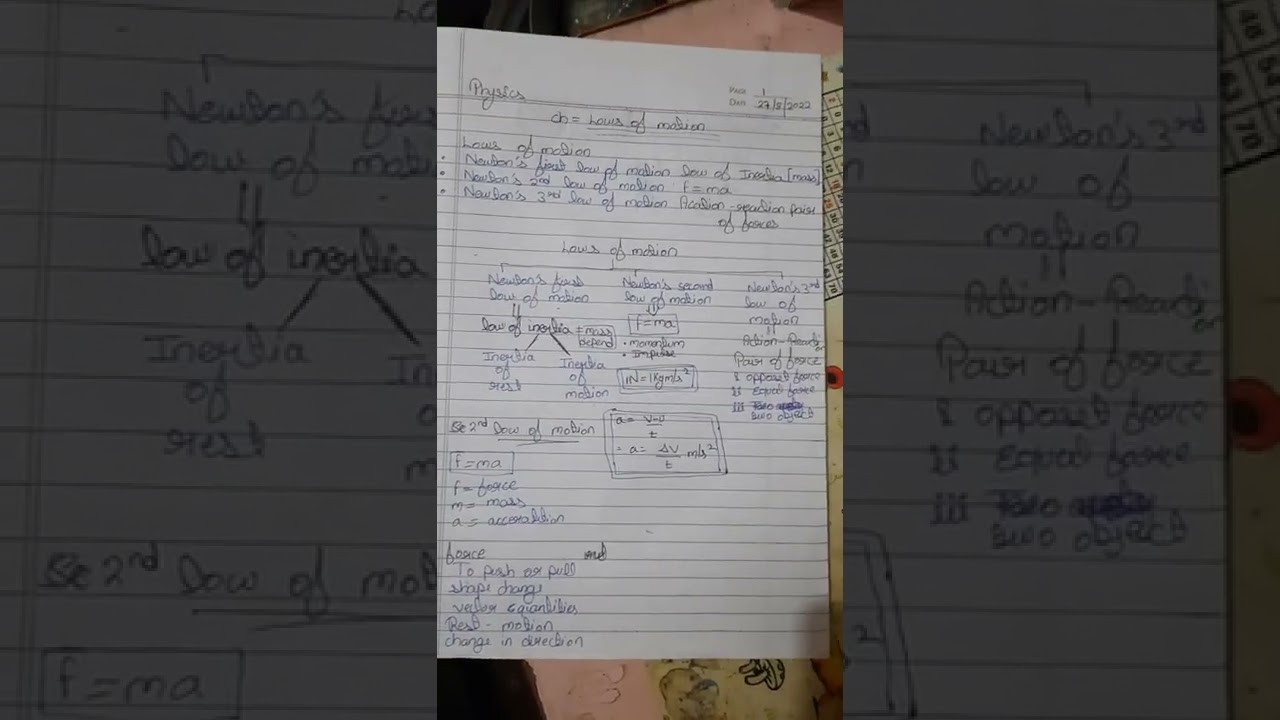 Physics
PAGE 1
DATE 27/8/2022
Ch = Laws of motion
Laws of motion
• Newton's first law of motion law of Inertia [mass]
• Newton's 2nd law of motion f=ma
• Newton's 3rd law of motion Action-reaction pair
of forces
Laws of motion
Newton's first
law of motion
law of inertia = mass
depend
Inertia
of
rest
Inertia
of
motion
Newton's second
law of motion
f=ma
• momentum
• Impulse
1N=1Kgm/s²
Newton's 3rd
law of
motion
Action-Reacti
on
Pair of force
i opposit force
ii Equal force
iii
two object
2nd law of motion
a = v-u
t
= a= Δv m/s²
t
f=ma
f= force
m= mass
a = acceralition
force
To push or pull
shape change
vector quantities
Rest - motion
change in direction